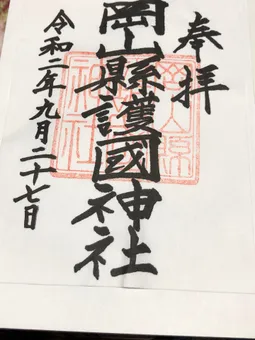 奉拝
岡山縣護國神社
令和二年九月二十七日